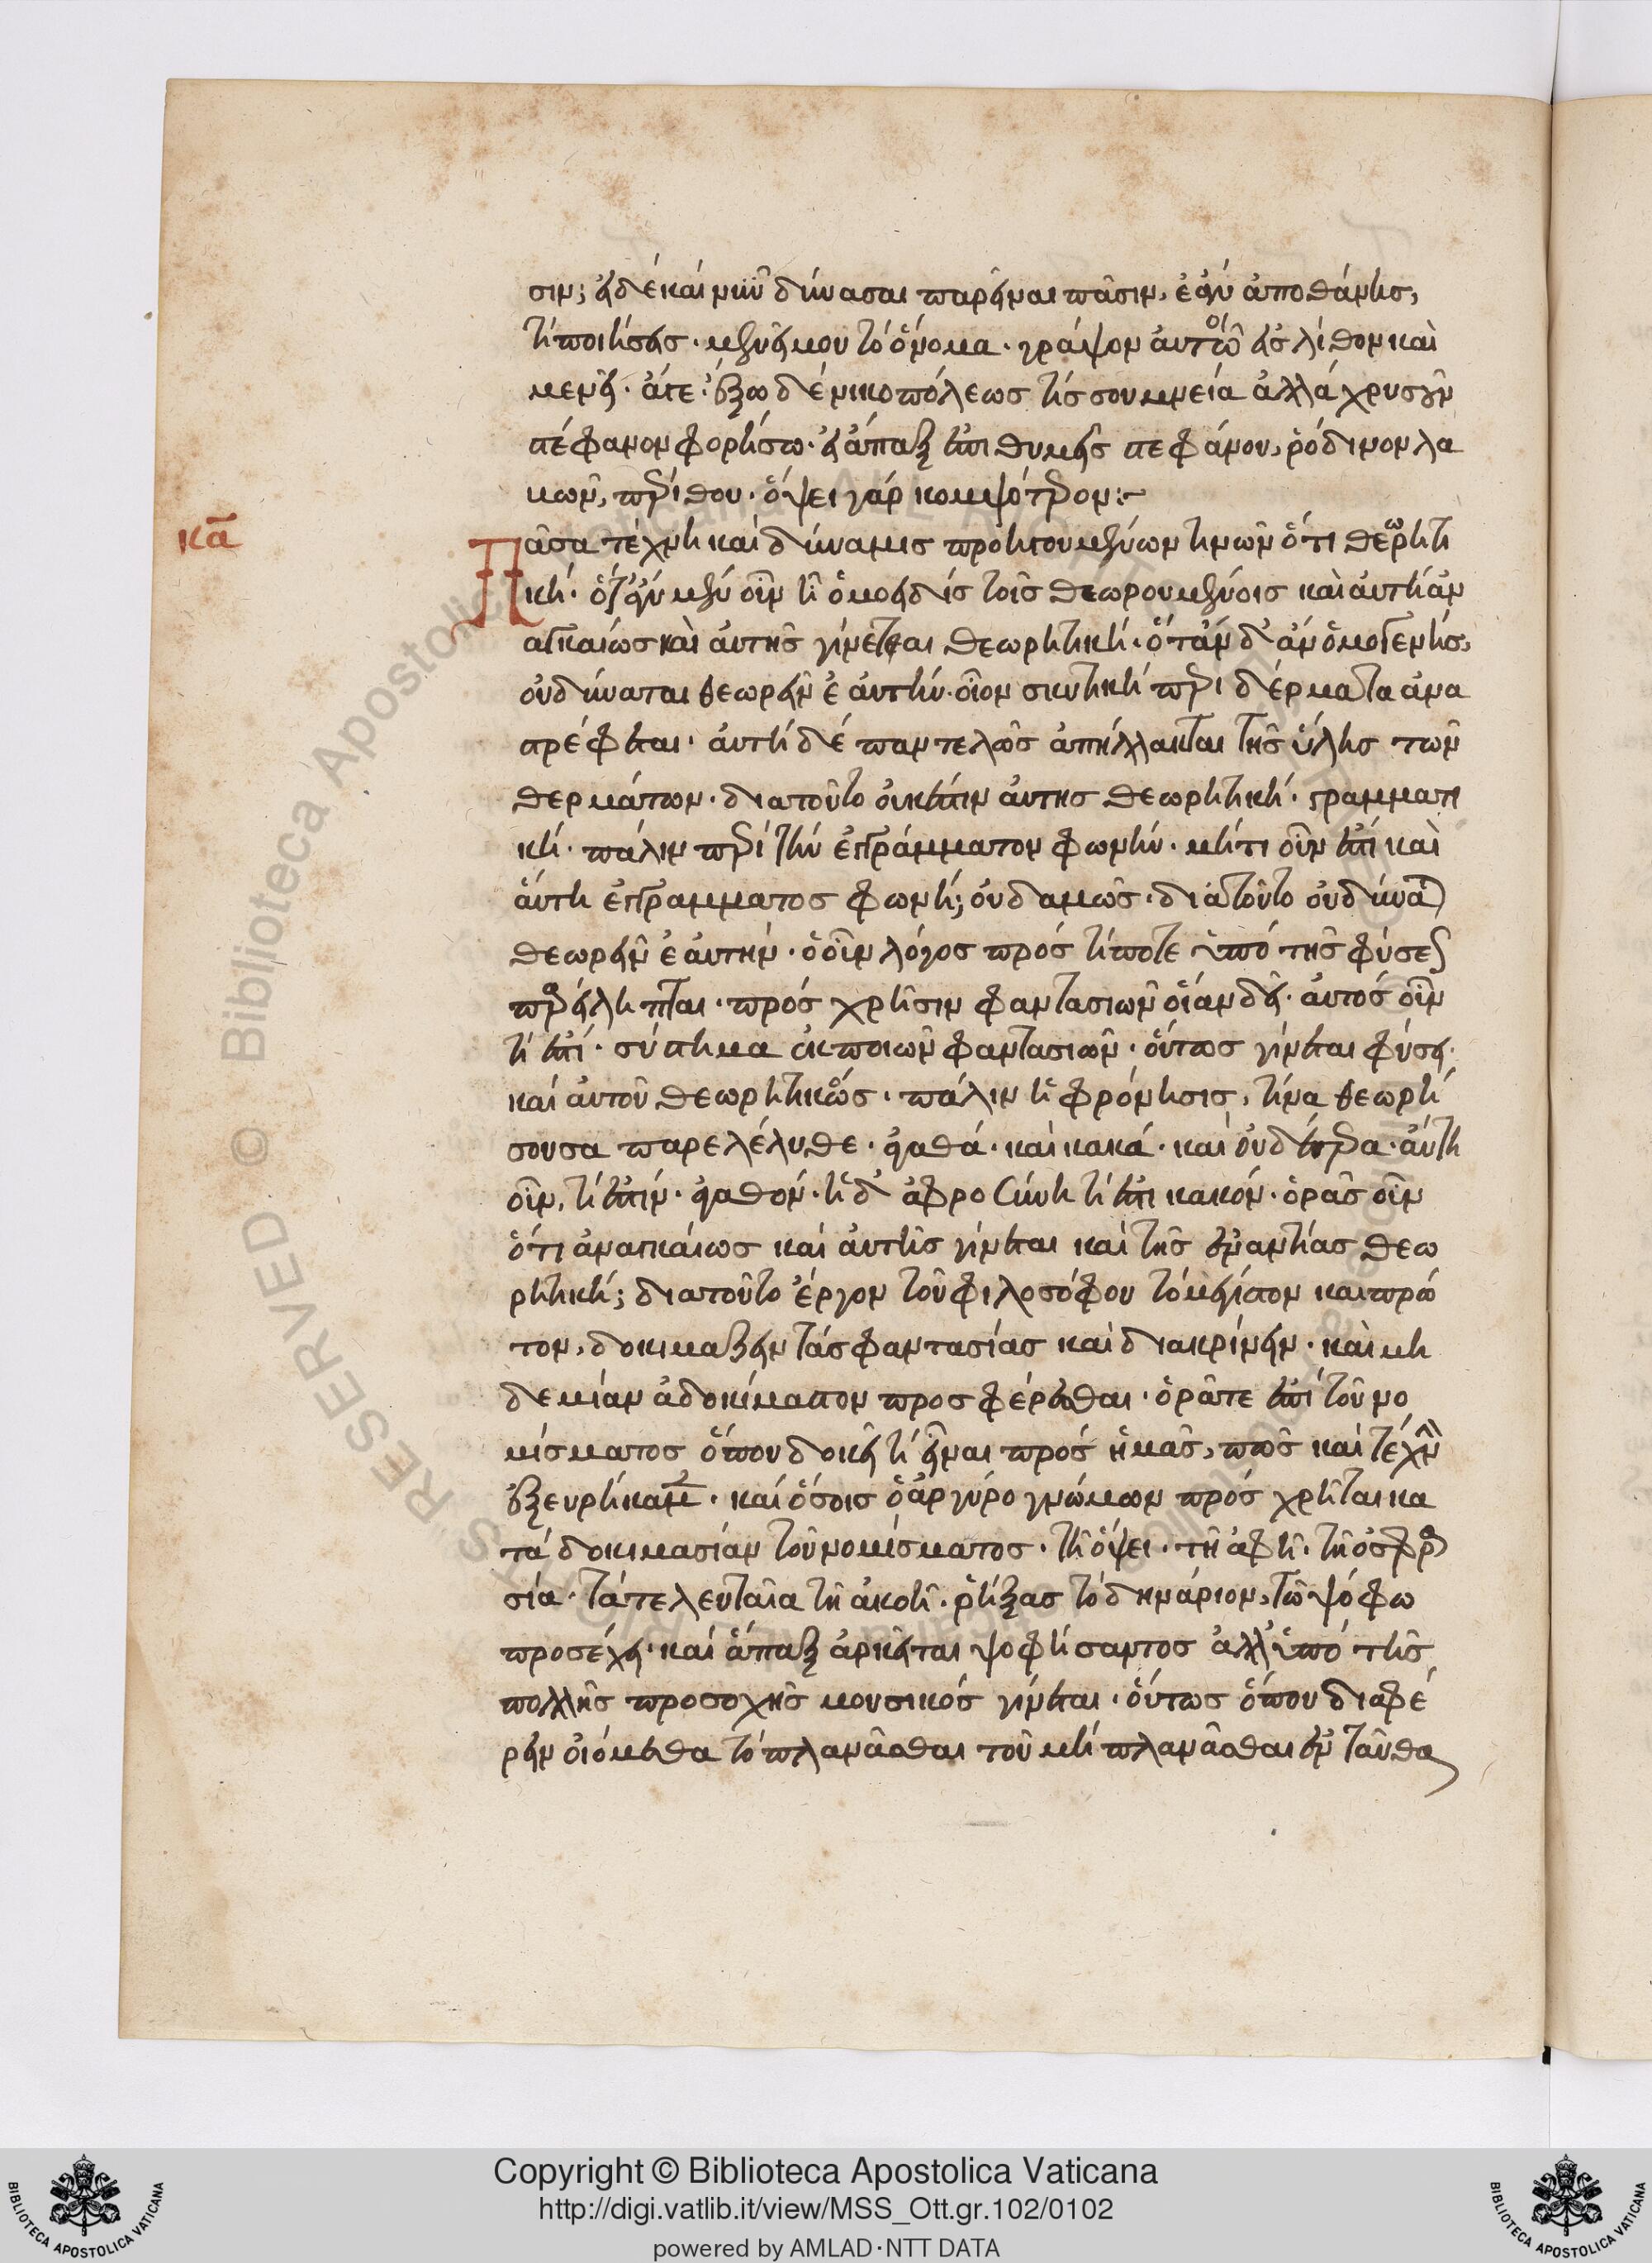 σιν; εἰ δὲ καὶ νῦν δύνασαι παρεῖναι πᾶσιν, ἐὰν ἀποθάνης,
τί ποιήσεις· μενεῖ μου τὸ ὄνομα· γράψον αὐτὸ εἰς λίθον καὶ
μενεῖ· ἄγε· ἔξω δὲ νικοπόλεως τίς σου μνεία ἀλλὰ χρυσοῦν
στέφανον φορήσω· εἰ ἅπαξ ἐπιθυμεῖς στεφάνου, ῥόδινον λα
μὼν, περίθου· ὄψει γὰρ κομψότερον:~
κα
Πᾶσα τέχνη καὶ δύναμις προηγουμένων τινῶν ἐστὶ θεωρητι
κή· ὅταν μὲν οὖν ἦ ὁμοειδὴς τοῖς θεωρουμένοις καὶ αὐτὴ ἀν
αγκαίως καὶ αὐτῆς γίνεται θεωρητική· ὅταν δ' ἀνομογενής,
οὐ δύναται θεωρεῖν ἑαυτήν· οἷον σκυτικὴ περὶ δέρματα ἀνα
στρέφεται· αὐτὴ δὲ παντελῶς ἀπήλλακται τῆς ὕλης τῶν
δερμάτων· διατοῦτο οὐκ ἔστιν αὐτῆς θεωρητική· γραμματι
κὴ πάλιν περὶ τὴν ἐγγράμματον φωνήν· μή τι οὖν ἐστὶ καὶ
αὐτὴ ἐγγράμματος φωνή; οὐδαμῶς· διὰ τοῦτο οὐ δύναται
θεωρεῖν ἑαυτήν· ὁ οὖν λόγος πρὸς τί ποτε ὑπὸ τῆς φύσεως
παρείληπται· πρὸς χρῆσιν φαντασιῶν οἵαν δεῖ· αὐτὸς οὖν
τί ἐστι· σύστημα ἐκ ποιῶν φαντασιῶν· οὕτως γίνεται φύσει·
καὶ αὐτοῦ θεωρητικός· πάλιν ἡ φρόνησις, τίνα θεωρή
σουσα παρελήλυθε· ἀγαθὰ· καὶ κακά· καὶ οὐδέτερα· αὐτὴ
οὖν, τί ἐστιν· ἀγαθόν· ἡ δ' ἀφροσύνη τί ἐστι κακόν· ὁρᾶς οὖν
ὅτι ἀναγκαίως καὶ αὐτῆς γίνεται καὶ τῆς ἐναντίας θεω
ρητική; διατοῦτο ἔργον τοῦ φιλοσόφου τὸ μέγιστον καὶ πρῶ
τον, δοκιμάζειν τὰς φαντασίας καὶ διακρίνειν· καὶ μη
δεμίαν ἀδοκίμαστον προσφέρεσθαι· ὁρᾶτε ἐπὶ τοῦ νο
μίσματος ὅπου δοκεῖ τί εἶναι πρὸς ἡμᾶς, πῶς καὶ τέχνην
ἐξευρήκαμεν· καὶ ὅσοις ὁ ἀργυρογνώμων προσχρῆται κα
τὰ δοκιμασίαν τοῦ νομίσματος· τῇ ὄψει· τῇ ἁφῇ· τῇ ὀσφρα
σία· τὰ τελευταῖα τῇ ἀκοῇ· ῥήξας τὸ δηνάριον, τῷ ψόφω
προσέχει· καὶ ἅπαξ ἀρκεῖται ψοφήσαντος ἀλλ' ὑπὸ τῆς
πολλῆς προσοχῆς μουσικὸς γίνεται· οὕτως ὅπου διαφέ
ρειν οἰόμεθα τὸ πλανᾶσθαι τοῦ μὴ πλανᾶσθαι ἐνταῦθα
Copyright © Biblioteca Apostolica Vaticana
http://digi.vatlib.it/view/MSS_Ott.gr.102/0102
powered by AMLAD·NTT DATA